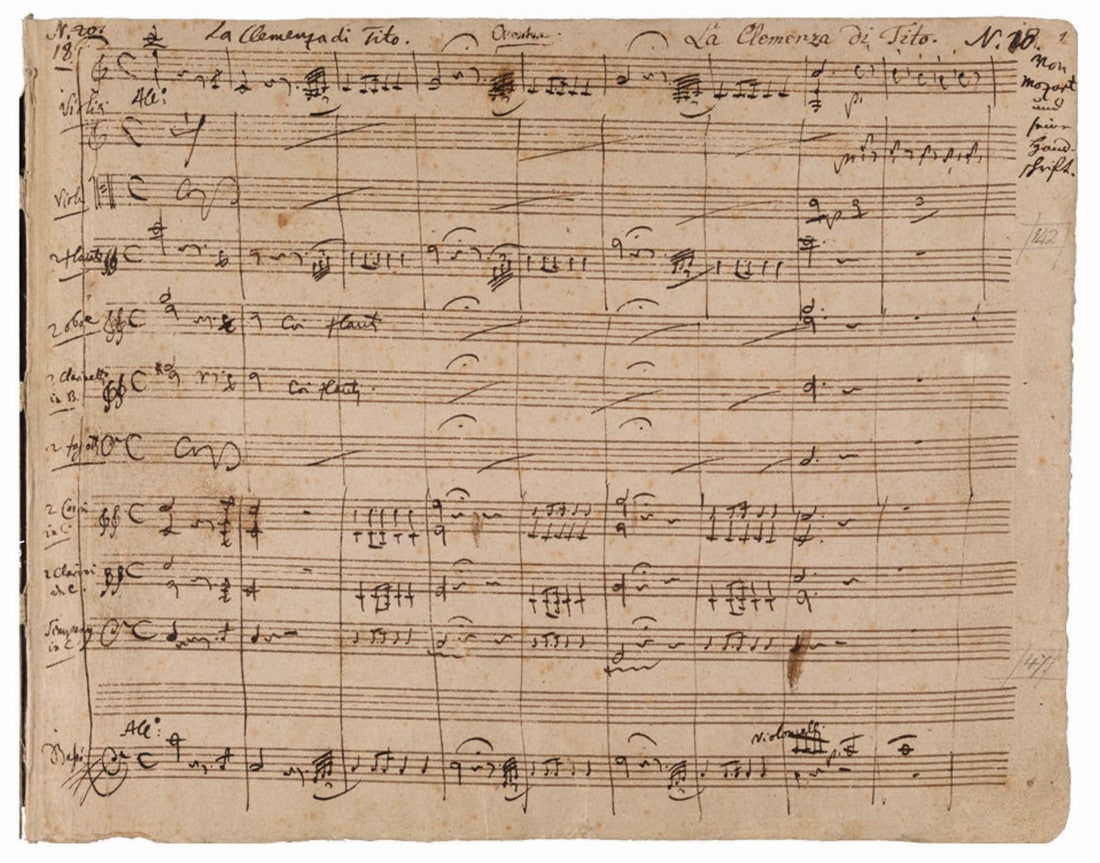 N. 20. La Clemenza di Tito. Overtura. La Clemenza di Tito. N. 18.
18
Von
Mozart
und
seine
Hand
schrift.
Violini
All:o
Viole
Col B
2 Flauti
2 oboe
Coi Flauti
2 Clarinetti
in B.
Coi Flauti.
2 fagotti
Col B
2 Corni
in C.
2 Clarini
in C.
Timpany
in C
All:o
Violoncelli
Bassi
p
/142/
/47/